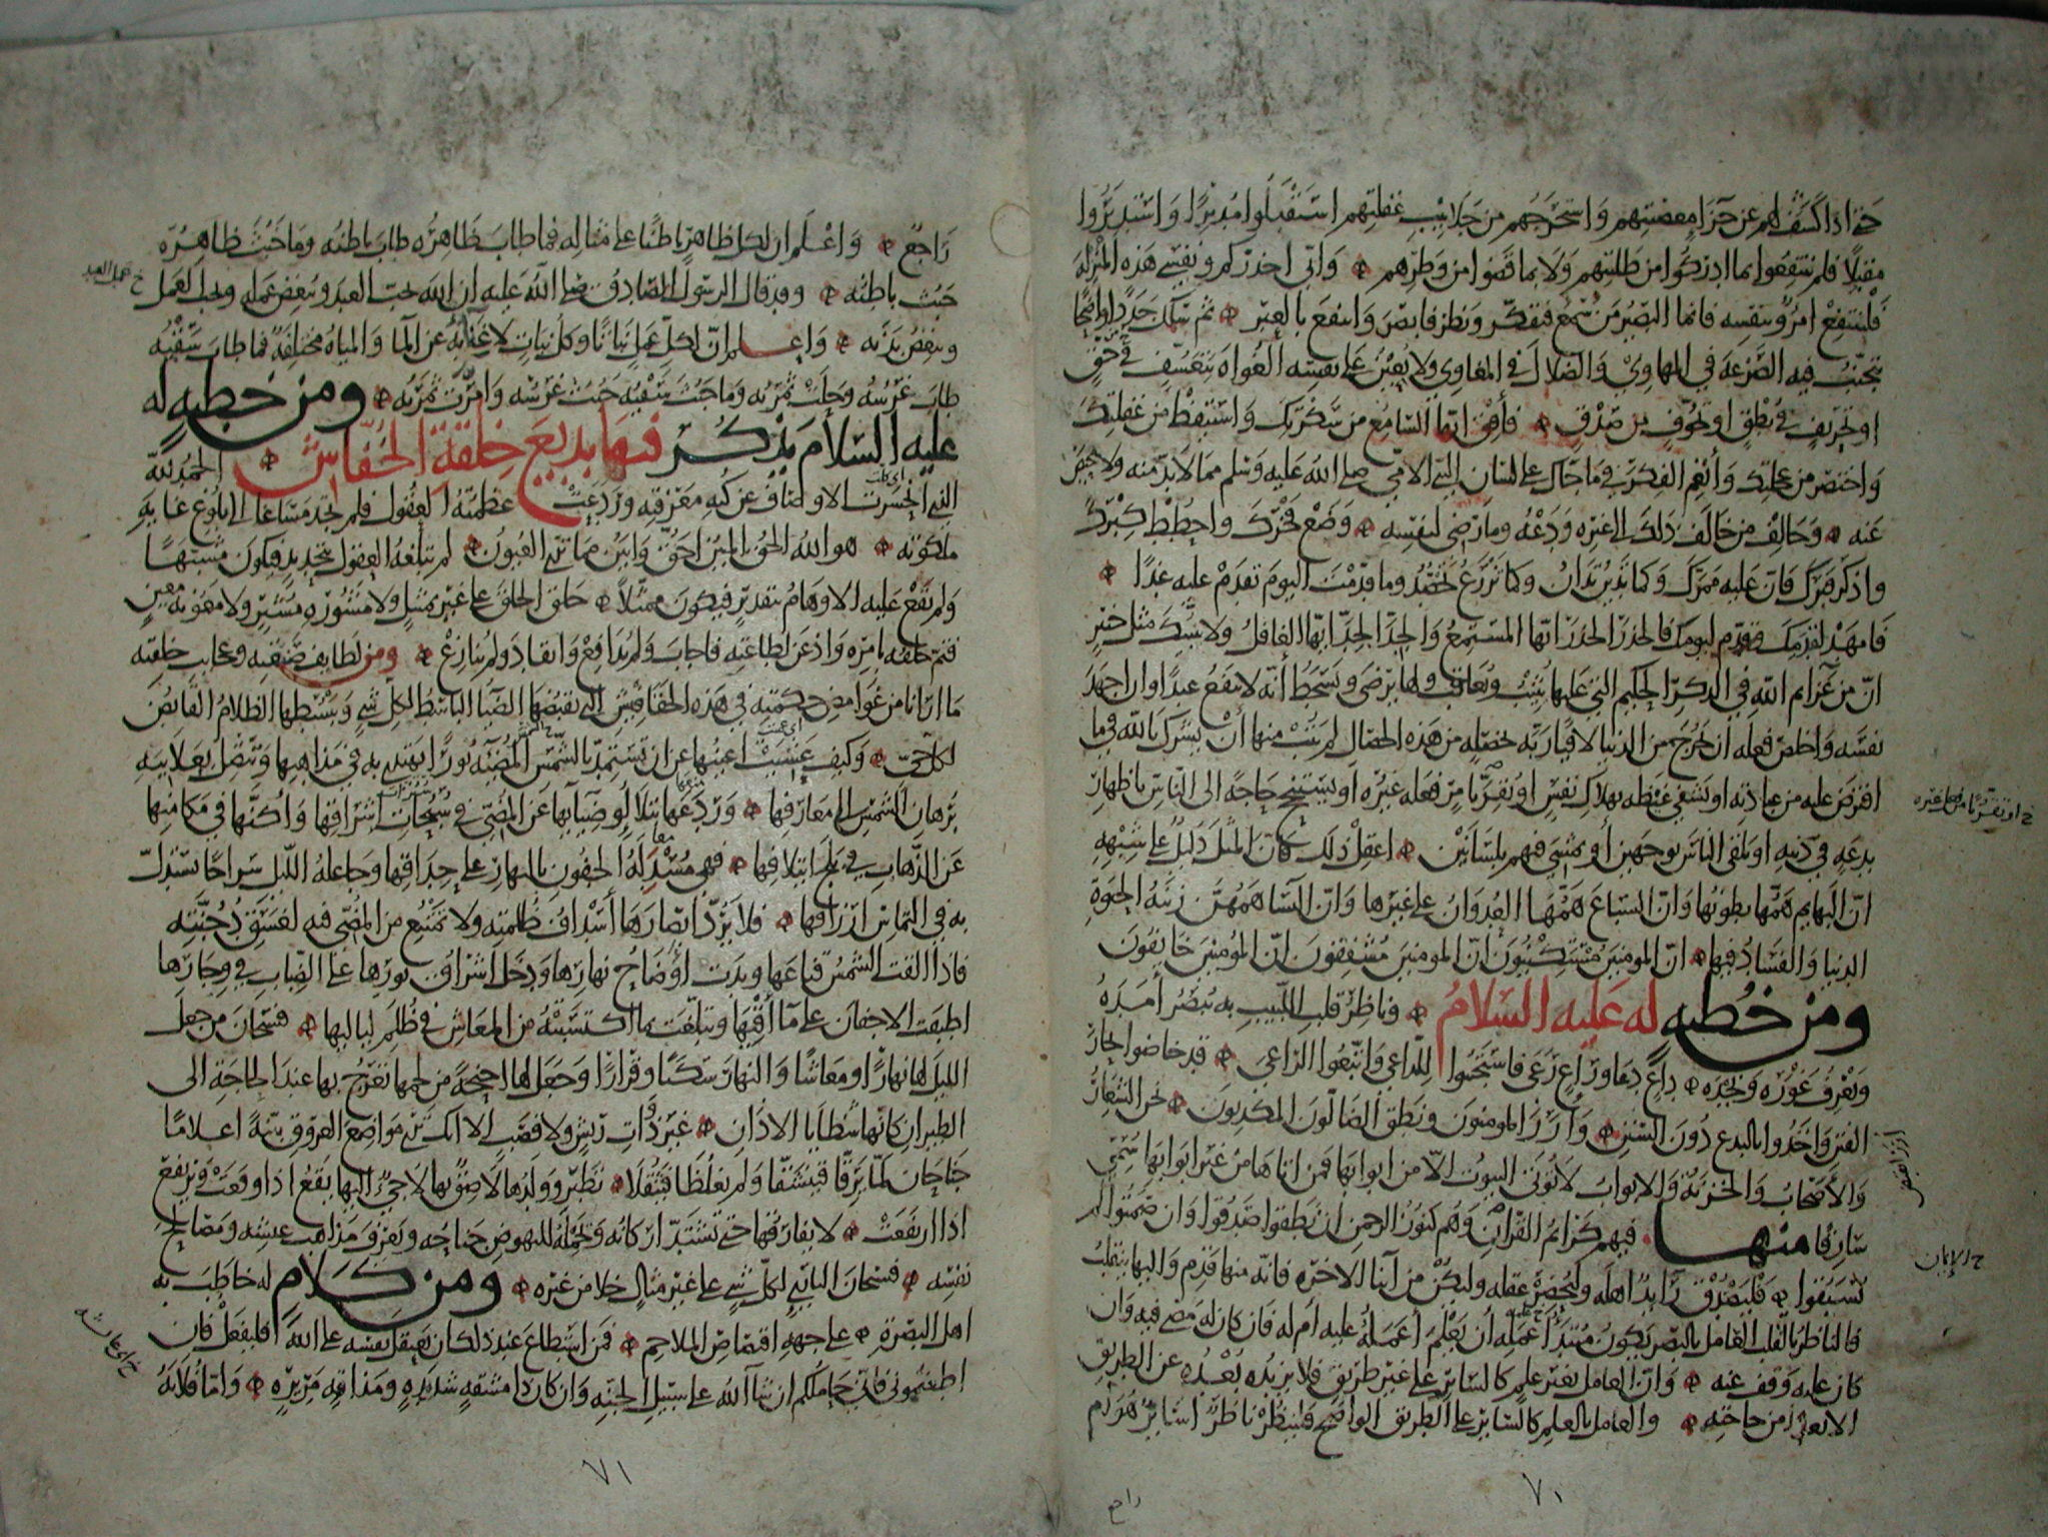 حتى اذا كشف لهم عن جزا معصيتهم واستخرجهم من جلابيب غفلتهم استقبلوا مدبرًا واستدبروا
مقبلًا فلم ينتفعوا بما ادركوا من طلبتهم ولا بما قضوا من وطرهم واني احذركم ونفسي هذه المنزلة
فلينتفع امرؤ بنفسه فانما البصير من سمع فتفكر ونظر فابصر وانتفع بالعبر ثم سلك جددا واضحا
يتجنب فيه الصرعة في المهاوي والضلال في المغاوي ولا يعين على نفسه الغواة بتعسف في حق
او تحريف في نطق او تخوف من صدق فأفق ايها السامع من سكرتك واستيقظ من غفلتك
واختصر من عجلتك وأنعم الفكر في ما جاك على لسان النبي الامي صلى الله عليه وسلم مما لا بد منه ولا محيص
عنه وخالف من خالف ذلك الى غيره ودعه وما رضي لنفسه وضع فخرك واحطط كبرك
واذكر قبرك فان عليه ممرك وكما تدين تدان وكما تزرع تحصد وما قدمت اليوم تقدم عليه غدًا
فامهد لقدمك وقدم ليومك فالحذر الحذر ايها المستمع والجد الجد ايها الغافل ولا ينبئك مثل خبير
ان من عزايم الله في الذكر الحكيم التي عليها يثيب ويعاقب ولها يرضى ويسخط أنه لا ينفع عبدا وان اجهد
نفسه واخلص فعله ان يخرج من الدنيا لاقيا ربه بخصلة من هذه الخصال لم يتب منها أن يشرك بالله في ما
افترض عليه من عبادته او يشفي غيظه بهلاك نفس او يقر بامر فعله غيره او يستنجح حاجة الى الناس باظهار
بدعة في دينه او يلقى الناس بوجهين أو يمشي فيهم بلسانين اعقل ذلك فان المثل دليل على شبهه
ان البهايم همها بطونها وان السباع همها العدوان على غيرها وان النسا همهن زينة الحيوة
الدنيا والفساد فيها ان المومنين مستكينون ان المومنين مشفقون ان المومنين خائفون
ومن خطبة له عليه السلام وناظر قلب اللبيب به يبصر أمده
ويعرف غوره ونجده داع دعا وراع رعى فاستجيبوا للداعي واتبعوا الراعي قد خاضوا بحار
الفتن واخذوا بالبدع دون السنن وأرز المومنون ونطق الضالون المكذبون نحن الشعار
والأصحاب والخزنة والابواب لا تؤتى البيوت الا من ابوابها فمن اتاها من غير ابوابها سمي
سارقا منها فيهم كرائم القرآن وهم كنوز الرحمن ان نطقوا صدقوا وان صمتوا لم
يسبقوا فليصدق رائد أهله وليحضر عقله وليكن من أبنا الاخرة فانه منها قدم واليها ينقلب
فالناظر بالقلب العامل بالبصر يكون مبتدأ عمله أن يعلم أعمله عليه أم له فان كان له مضى فيه وان
كان عليه وقف عنه وان العامل بغير علم كالساير على غير طريق فلا يزيده بعده عن الطريق
الا بعدا من حاجته والعامل بالعلم كالساير على الطريق الواضح فلينظر ناظر أساير هو ام
ح الايمان
٧٠
راجع واعلم ان لكل ظاهر باطنًا على مثاله فما طاب ظاهره طاب باطنه وما خبث ظاهره
خبث باطنه وقد قال الرسول الصادق صلى الله عليه ان الله يحب العبد ويبغض عمله ويحب العمل
ويبغض بدنه واعلم ان لكل عمل نباتًا وكل نبات لا غنى به عن الما والمياه مختلفة فما طاب سقيه
طاب غرسه وحلت ثمرته وما خبث سقيه خبث غرسه وامرت ثمرته ومن خطبة له
عليه السلام يذكر فيها بديع خلقة الخفاش الحمد لله
الذي انحسرت الاوصاف عن كنه معرفته وردعت عظمته العقول فلم تجد مساغا الى بلوغ غاية
ملكوته هو الله الحق المبين احق وابين مما ترى العيون لم تبلغه العقول بتحديد فيكون مشبهًا
ولم تقع عليه الاوهام بتقدير فيكون ممثلًا خلق الخلق على غير تمثيل ولا مشورة مشير ولا معونة معين
فتم خلقه بامره واذعن لطاعته فاجاب ولم يدافع وانقاد ولم ينازع ومن لطايف صنعته وعجايب خلقته
ما ارانا من غوامض حكمته في هذه الخفافيش التي يقبضها الضيا الباسط لكل شي ويبسطها الظلام القابض
لكل حي وكيف عشيت اعينها عن ان تستمد بالشمس المضيئة نورًا تهتدي به في مذاهبها وتتصل بعلانية
برهان الشمس الى معارفها وردعها بتلالو ضيائها عن المضي في سبحات اشراقها واكنها في مكامنها
عن الذهاب في بلج ايتلاقها فهي مسدلة الجفون بالنهار على حداقها وجاعلة الليل سراجًا تستدل
به في التماس ارزاقها فلا يرد ابصارها أسداف ظلمته ولا تمتنع من المضي فيه لغسق دجنته
فاذا القت الشمس قناعها وبدت أوضاح نهارها ودخل اشراق نورها على الضباب في وجارها
اطبقت الاجفان على مآقيها وتبلغت بما اكتسبته من المعاش في ظلم لياليها فسبحان من جعل
الليل لها نهارًا ومعاشًا والنهار سكنًا وقرارًا وجعل لها اجنحة من لحمها تعرج بها عند الحاجة الى
الطيران كانها شظايا الاذان غير ذوات ريش ولا قصب الا انك ترى مواضع العروق بينة اعلامًا
جناحان لما يرقا فينشقا ولم يغلظا فيثقلا تطير وولدها لاصق بها لاجئ اليها يقع اذا وقعت ويرتفع
اذا ارتفعت لا يفارقها حتى تشتد اركانه ويحمله للنهوض جناحه ويعرف مذاهب عيشه ومصالح
نفسه فسبحان الباري لكل شي على غير مثال خلا من غيره ومن كلام له خاطب به
اهل البصرة على جهة اقتصاص الملاحم فمن استطاع عند ذلك ان يعتقل نفسه على الله فليفعل فان
اطعتموني فاني حاملكم ان شا الله على سبيل الجنة وان كان ذا مشقة شديدة ومذاقة مريرة وأما فلانة
٧١